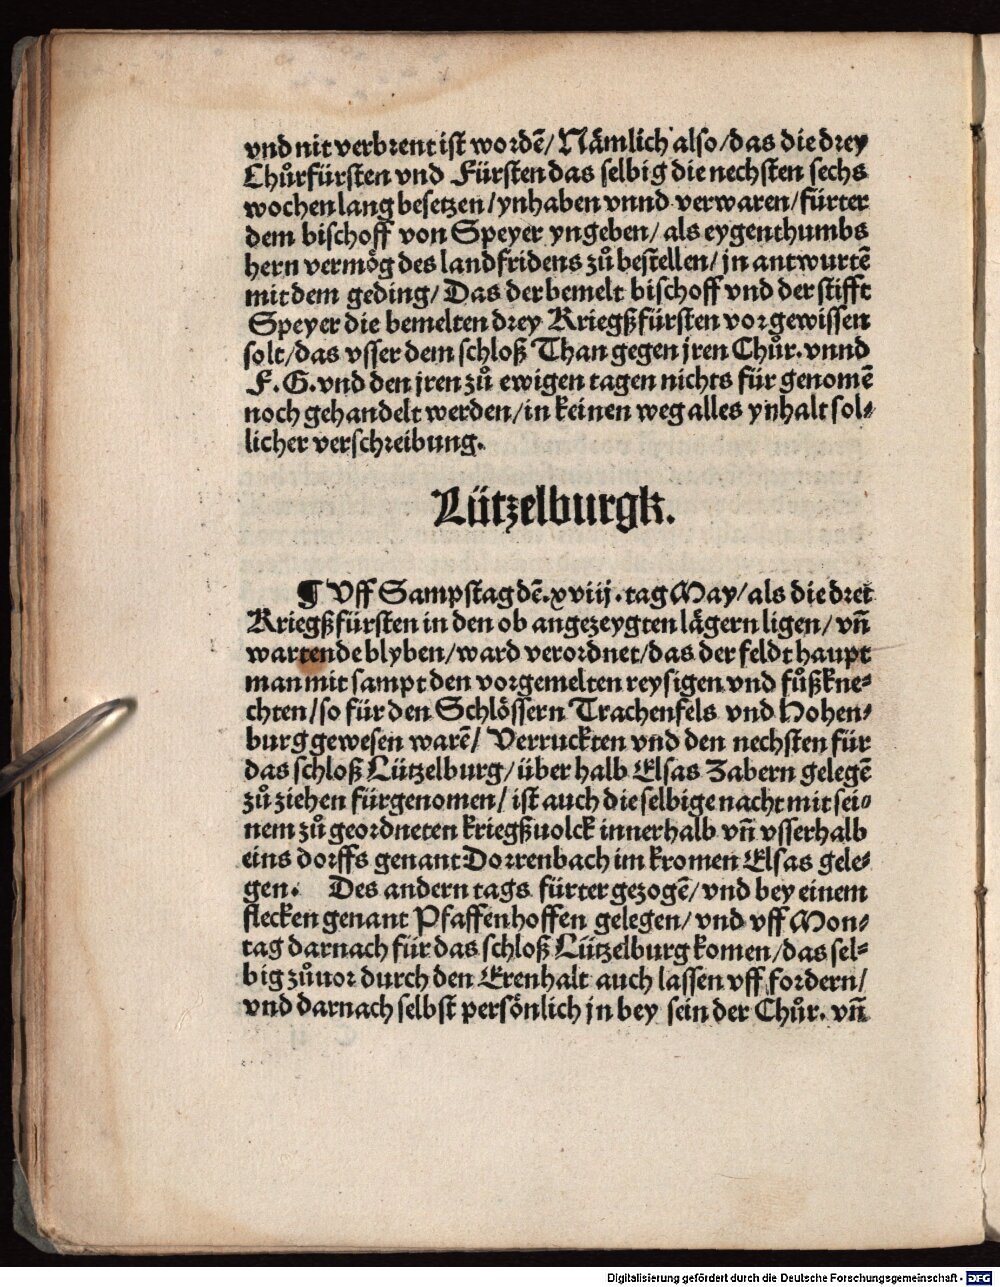 vnd nit verbrent ist wordē/ Nämlich also/das die drey
Chůrfürsten vnd Fürsten das selbig die nechsten sechs
wochen lang besetzen/ynhaben vnnd verwaren/fürter
dem bischoff von Speyer yngeben/ als eygenthumbs
hern vermög des landfridens zů bestellen/ jn antwurtē
mit dem geding/ Das der bemelt bischoff vnd der stifft
Speyer die bemelten drey Kriegßfürsten vorgewissen
solt/das vsser dem schloß Than gegen jren Chůr. vnnd
F. G. vnd den jren zů ewigen tagen nichts für genomē
noch gehandelt werden/in keinen weg alles ynhalt sol⸗
licher verschreibung.
Lützelburgk.
¶ Vff Sampstag dē.xviij.tag May/als die drei
Kriegßfürsten in den ob angezeygten lägern ligen/ vñ
wartende blyben/ward verordnet/das der feldt haupt
man mit sampt den vorgemelten reysigen vnd fůßkne⸗
chten/so für den Schlössern Trachenfels vnd Hohen⸗
burg gewesen warē/ Verruckten vnd den nechsten für
das schloß Lützelburg/über halb Elsas Zabern gelegē
zů ziehen fürgenomen/ ist auch die selbige nacht mit sei⸗
nem zů geordneten kriegßuolck innerhalb vñ vsserhalb
eins dorffs genant Dorrenbach im kromen Elsas gele⸗
gen. Des andern tags fürter gezogē/vnd bey einem
flecken genant Pfaffenhoffen gelegen/ vnd vff Mon⸗
tag darnach für das schloß Lützelburg komen/das sel⸗
big zůuor durch den Erenhalt auch lassen vff fordern/
vnd darnach selbst persönlich jn bey sein der Chůr. vñ
Digitalisierung gefördert durch die Deutsche Forschungsgemeinschaft - DFG